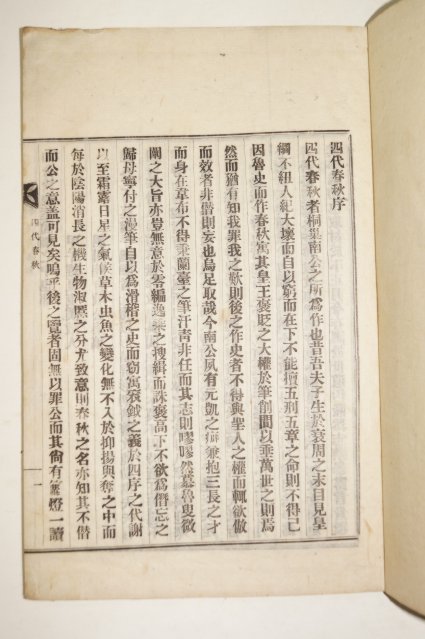 四代春秋序
四代春秋者桐巢南公之所爲作也昔吾夫子生於衰周之末目見皇
綱不紐人紀大壞而自以窮而在下不能擅五刑五章之命則不得已
因魯史而作春秋寓其皇王褒貶之大權於筆削間以垂萬世之則焉
然而猶有知我罪我之歎則後之作史者不得與聖人之權而輒欲倣
而效者非僭則妄也烏足取哉今南公夙有元凱之癖兼抱三長之才
而身在草布不得秉蘭臺之筆汗青非任而其志則嘐嘐然慕魯叟微
闡之大旨亦豈無意於零編逸乘之搜緝而誅褒高下不欲爲僭忘之
歸毋寧付之漫筆自以爲滑稽之史而窃寓袞鉞之義於四序之代謝
以至霜露日星之氣候草木虫魚之變化無不入於抑揚與奪之中而
每於陰陽消長之機生物淑慝之分尤致意則春秋之名亦知其不僭
而公之意盖可見矣嗚乎後之覽者固無以罪公而其尙有篝燈一讀
四代春秋
一